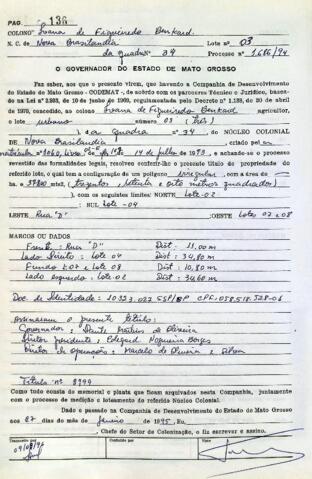 PAG. 136
COLONO Ivana de Figueiredo Bernard. Lote nº 03
N. C. de Nova Brasilandia
da quadra 34 Processo nº 1.686/94
O GOVERNADOR DO ESTADO DE MATO GROSSO
Faz saber, aos que o presente virem, que havendo a Companhia de Desenvolvimento
do Estado de Mato Grosso - CODEMAT -, de acordo com os pareceres Técnico e Jurídico, basea-
do na Lei nº 2.993, de 10 de junho de 1969, regulamentada pelo Decreto nº 1.138, de 20 de abril
de 1970, concedido, ao colono Ivana de Figueiredo Bernard agricultor,
o lote urbano número 03 (três)
da quadra nº 34, do NÚCLEO COLONIAL
de Nova Brasilandia, criado pel
14 de julho de 1973, e achando-se o processo
revestido das formalidades legais, resolveu conferir-lhe o presente título de propriedade
do referido lote, o qual tem a configuração de um polígono irregular, com a área de
(trezentos, setenta e oito metros quadrados)
), com os seguintes limites: NORTE Lote - 02
SUL Lote - 04
LESTE Rua "D" OESTE Lotes 07 e 08
MARCOS OU DADOS
Frente: Rua "D" Dist: 11,00 m
Lado Direito: Lote 04 Dist: 34,80 m
Fundo: L-07 e Lote 08 Dist: 10,80 m
Lado esquerdo: Lote 02 Dist: 34,60 m
Doc. de Identidade: 10323.022 SSP/SP CPF. 058.518.328-06
Assinaram o presente título:
Governador: Dante Martins de Oliveira
Diretor Presidente: Edegard Nogueira Borges
Diretor de operações: Marcelo de Oliveira e Silva
Título nº 8999
Como tudo consta do memorial e planta que ficam arquivados nesta Companhia, juntamente
com o processo de medição e loteamento do referido Núcleo Colonial.
Dado e passado na Companhia de Desenvolvimento do Estado de Mato Grosso
aos 27 dias do mês de Janeiro de 1995, Eu,
, Chefe do Setor de Colonização, o fiz escrever e assino.
Transcrito por
Conferido por
Visto